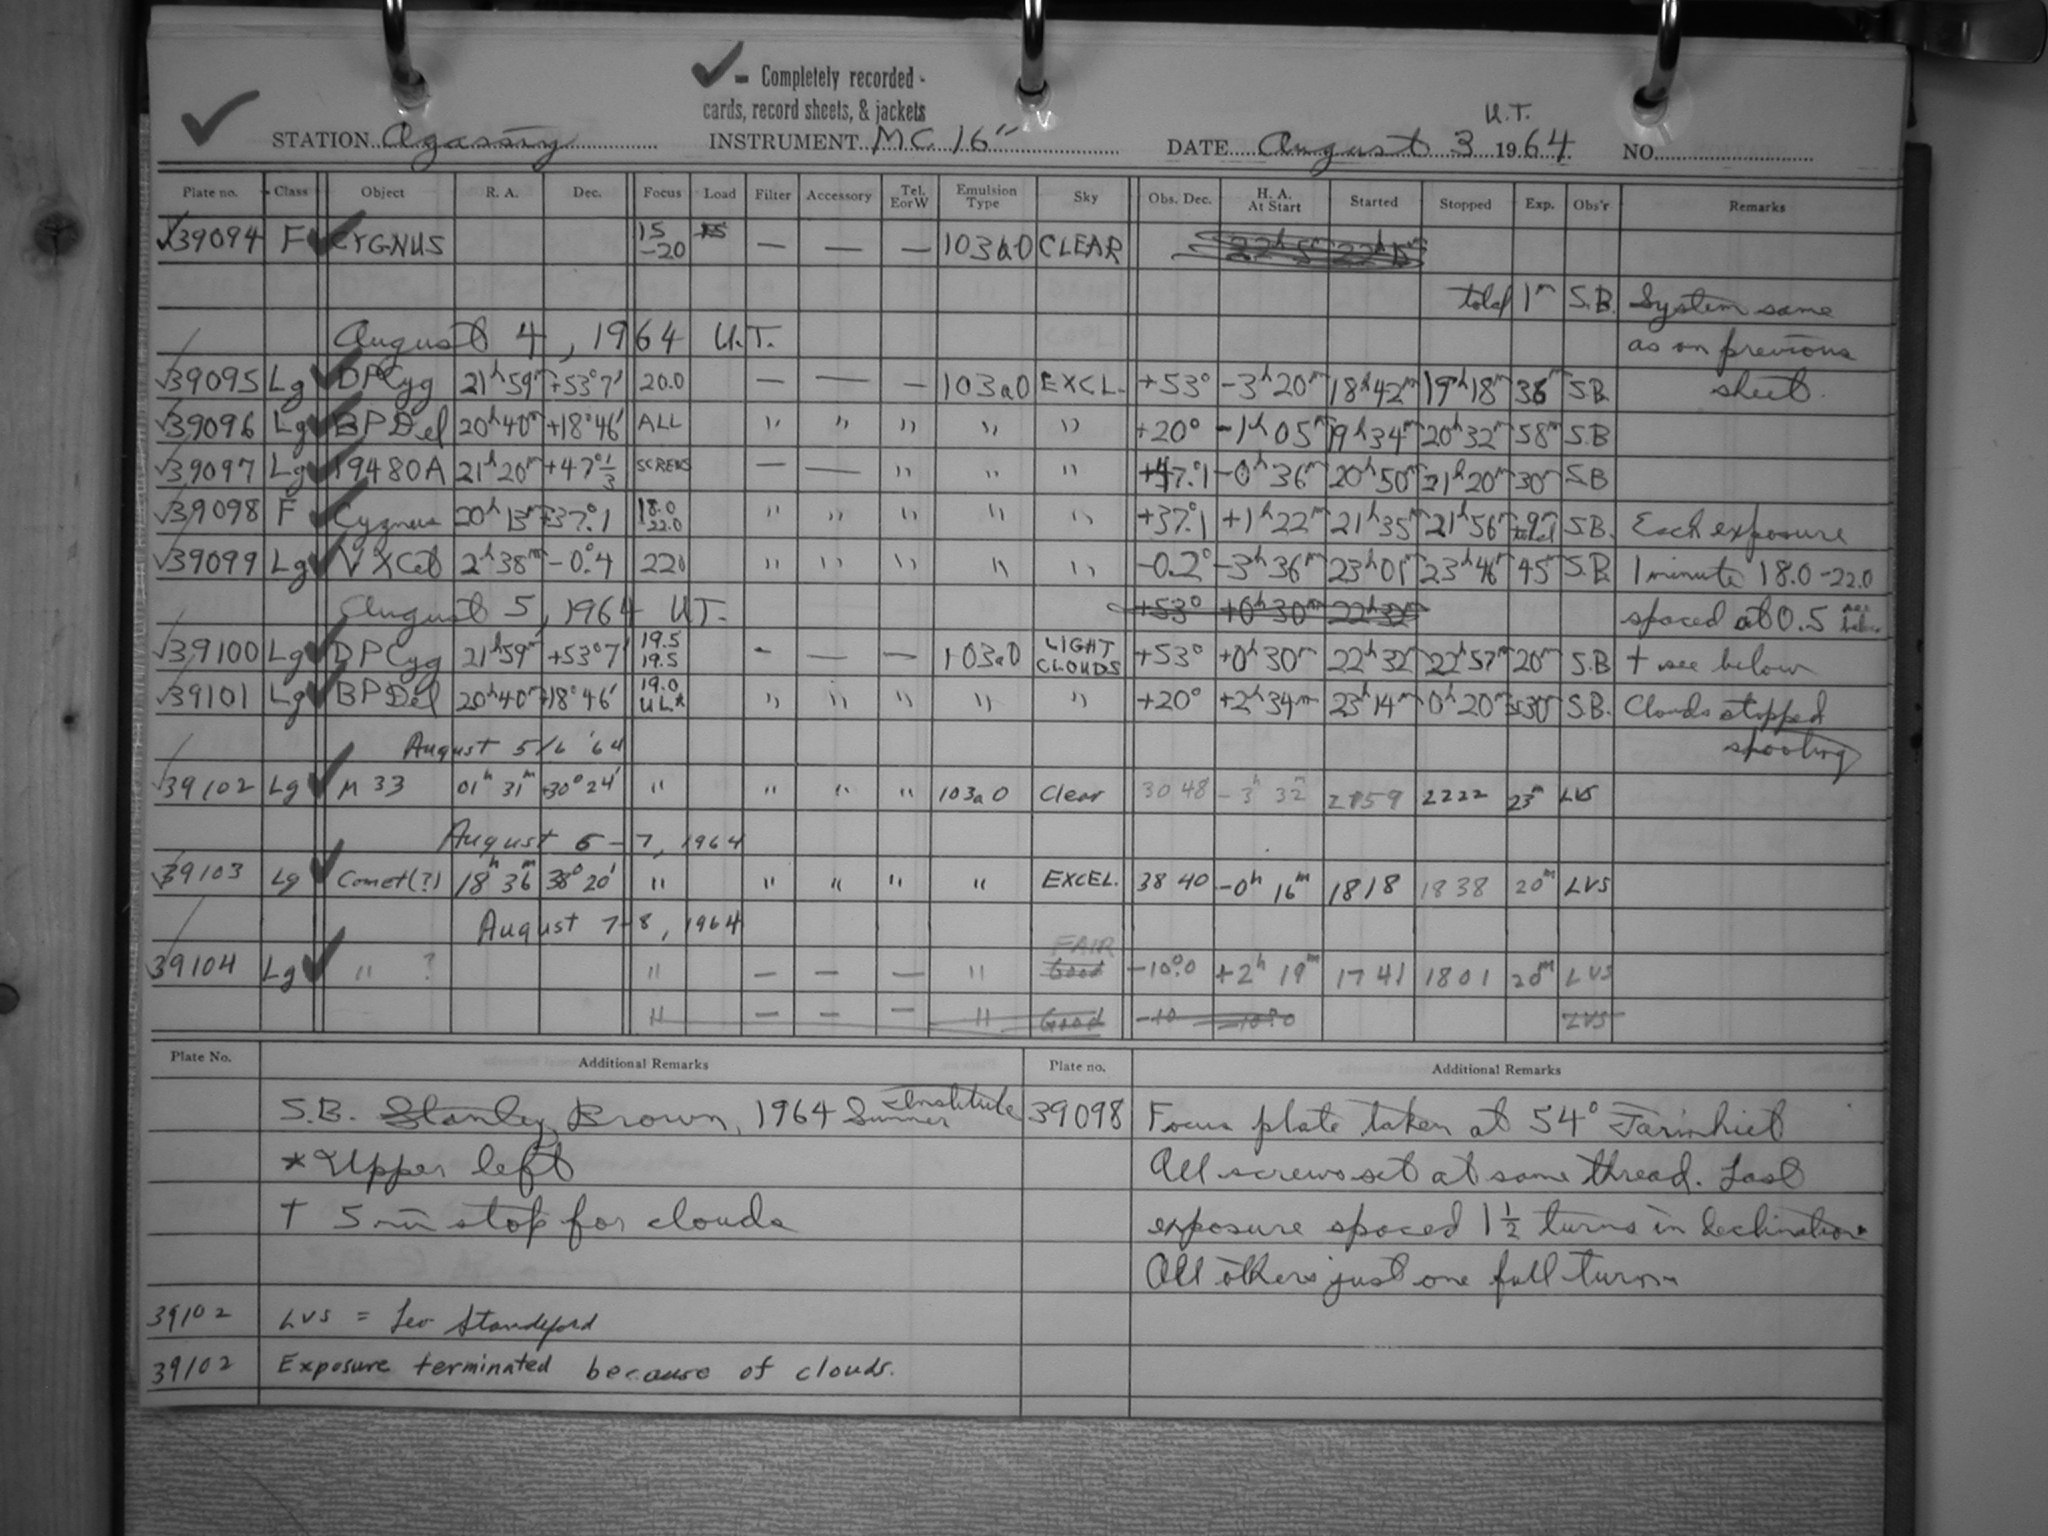 ✓ – Completely recorded -
cards, record sheets, & jackets
U.T.
STATION Agassiy INSTRUMENT MC 16" DATE August 3 1964 NO.
Plate no. Class Object R. A. Dec. Focus Load Filter Accessory Tel. EorW Emulsion Type Sky Obs. Dec. H. A. At Start Started Stopped Exp. Obs'r Remarks
39094 F CYGNUS 15 -20 — — — 103a0 CLEAR
total 1m S.B. System same
August 4, 1964 U.T. as on previous
39095 Lg DPCyg 21h59m +53°7' 20.0 — — — 103a0 EXCL. +53° -3h20m 18h42m 19h18m 36m S.B. sheet.
39096 Lg BPDel 20h40m +18°46' ALL " " " " " +20° -1h05m 19h34m 20h32m 58m S.B
39097 Lg 19480A 21h20m +47°1/3 SCREWS — — " " " +47.°1 -0h36m 20h50m 21h20m 30m S.B
39098 F Cygnus 20h13m +37.°1 18.0 22.0 " " " " " +37.°1 +1h22m 21h35m 21h56m 9m total S.B. Each exposure
39099 Lg VXCet 2h38m -0.°4 220 " " " " " -0.2° -3h36m 23h01m 23h46m 45m S.B. 1 minute 18.0-22.0
August 5, 1964 U.T. +53° +0h30m 22h32 spaced at 0.5
39100 Lg DPCyg 21h59m +53°7' 19.5 19.5 - — — 103a0 LIGHT CLOUDS +53° +0h30m 22h32m 22h57m 20m S.B † see below
39101 Lg BPDel 20h40m +18°46' 19.0 UL* " " " " " +20° +2h34m 23h14m 0h20m 30m S.B. Clouds stopped
August 5/6 '64
39102 Lg M 33 01h 31m +30° 24' " " " " 103a0 Clear 30 48 -3h 32m 2159 2222 23m LVS
August 6-7, 1964
39103 Lg Comet(?) 18h 36m 38° 20' " " " " " EXCEL. 38 40 -0h 16m 1818 1838 20m LVS
August 7-8, 1964
FAIR
39104 Lg " ? " — — — " Good -10°.0 +2h 19m 1741 1801 20m LVS
" — — — " Good -10 -10°.0 LVS
Plate No. Additional Remarks Plate no. Additional Remarks
S.B. Stanley Brown, 1964 Summer Institute 39098 Focus plate taken at 54° Farinhiet
*Upper left All screws set at same thread. Last
† 5 min stop for clouds exposure spaced 1 1/2 turns in declination.
All others just one full turn
39102 LVS = Leo Standeford
39102 Exposure terminated because of clouds.